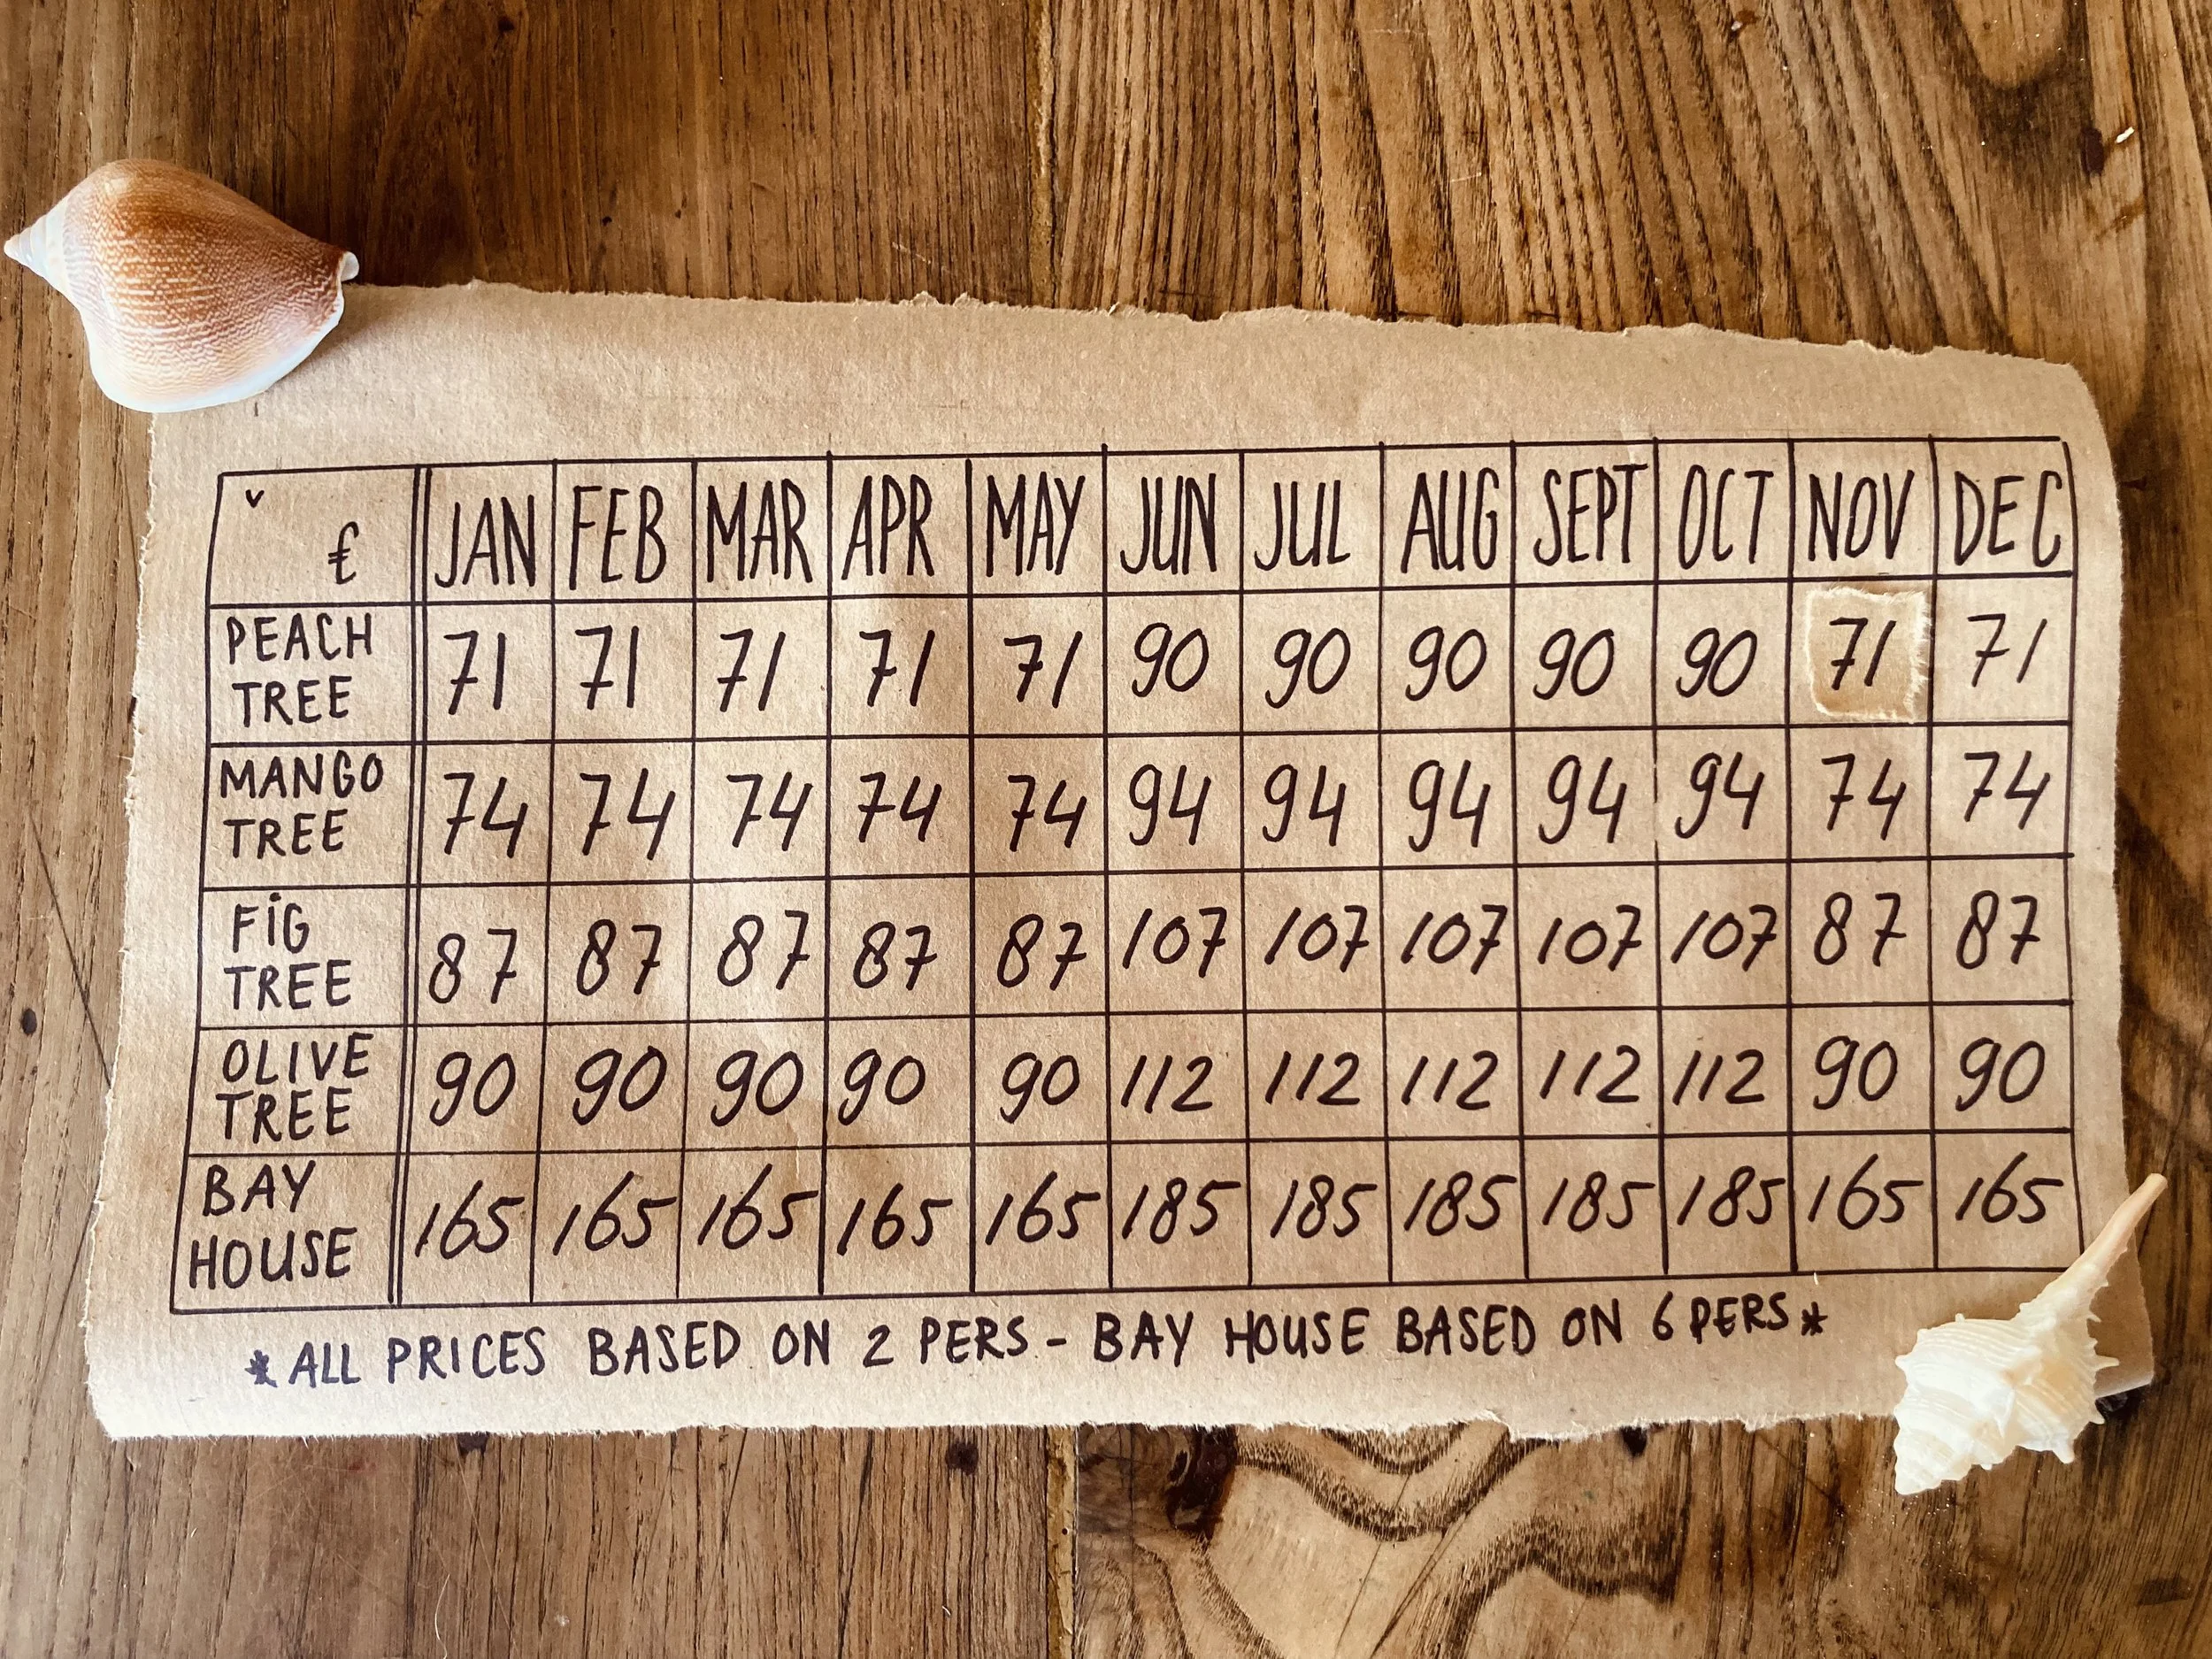 € JAN FEB MAR APR MAY JUN JUL AUG SEPT OCT NOV DEC
PEACH
TREE 71 71 71 71 71 90 90 90 90 90 71 71
MANGO
TREE 74 74 74 74 74 94 94 94 94 94 74 74
FiG
TREE 87 87 87 87 87 107 107 107 107 107 87 87
OLIVE
TREE 90 90 90 90 90 112 112 112 112 112 90 90
BAY
HOUSE 165 165 165 165 165 185 185 185 185 185 165 165
*ALL PRICES BASED ON 2 PERS - BAY HOUSE BASED ON 6 PERS*